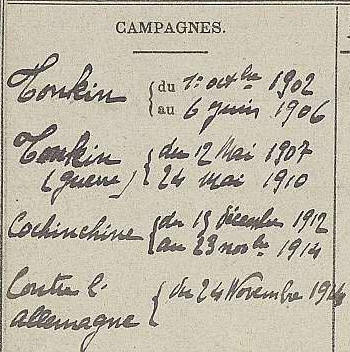 CAMPAGNES.
Tonkin { du 1er octbre 1902
au 6 juin 1906
Tonkin { du 12 Mai 1907
(guerre) 24 Mai 1910
Cochinchine { du 15 décembre 1912
au 23 novbre 1914
Contre l' { du 24 Novembre
allemagne